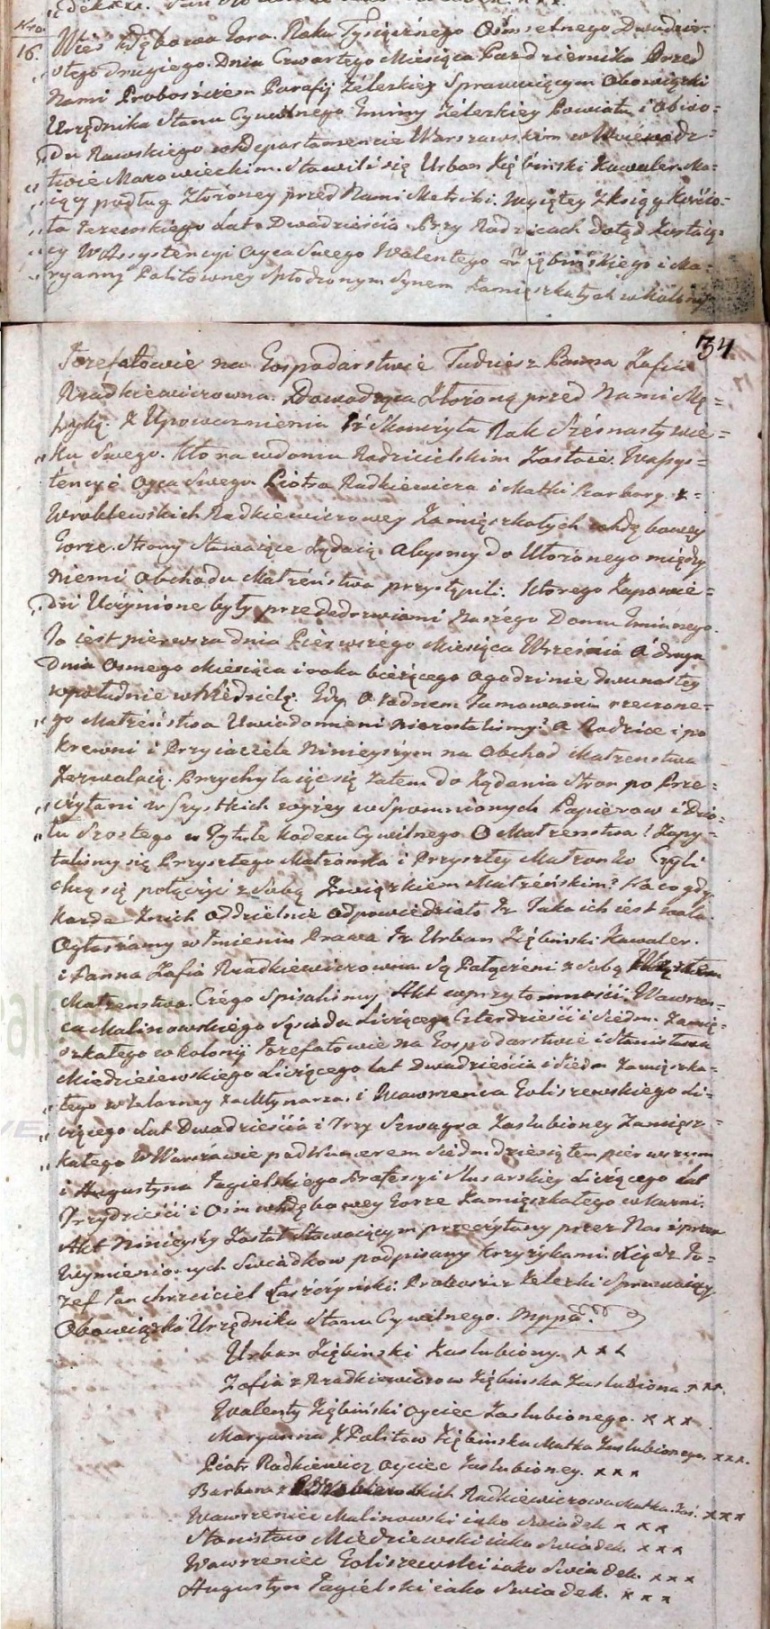 Nro
16.
Wieś Dębowa Gora. Roku Tysiącznego Osmsetnego Dwudzie-
stego drugiego. Dnia Czwartego Miesiąca Października Przed
Nami Proboszczem Parafij Żeleskiey Sprawuiącym Obowiązki
Urzędnika Stanu Cywilnego Gminy Żeleskiey Powiatu i Obwo-
du Rawskiego w Departamencie Warszawskim w Woiewodz-
twie Mazowieckim. Stawili się Urban Ziębinski Kawaler. Ma-
iący podług Złożoney przed Nami Metriki. wyiętey z Ksiąg Kościo-
ła Jezewskiego Lat Dwadzieścia Przy Rodzicach dotąd Zostaią-
cy W Assystencyi Oyca Swego Walentego Ziębinskiego i Ma-
ryanny Politowney Spłodzonym Synem Zamięszkałych w Kolonij
34
Jozefatowie na Gospodarstwie Tudziesz Panna Zofia
Radkiewiczowna. Dowodząca Złożoną przed Nami Me-
tryką. Z Upoważnienia iż Skonczyła Rok Szesnasty wie-
ku Swego. Kto na w domu Rodzicielskim Zostaie. W assys-
tencyi Oyca Swego Piotra Radkiewicza i Matki Barbary z
Wroblewskich Radkiewiczowey Zamięszkałych w Dębowey
Gorze. Strony Stawaiące Żądaią abyśmy do Ułożonego między
niemi Obchodu Małżeństwa przystąpili. Ktorego Zapowie-
dzi Uczynione były przede drzwiami Naszego Domu Gminnego.
To iest pierwsza dnia Pierwszego Miesiąca Września a druga
Dnia Osmego Miesiąca i roku bieżącego o godzinie dwunastey
w południe w Niedzielę. Gdy o żadnem Tamowaniu rzeczone-
go Małżeństwa Uwiadomieni nie zostaliśmy. a Rodzice i po
krewni i Przyiaciele Ninieyszym na Obchod Małżenstwa
Zezwalaią. Przychylaiąc się zatem do Żądania Stron po Prze-
czytani Wszystkich wyżey wspomnionych Papierow i Dzia-
łu Szostego w Tytule Kodexu Cywilnego O Małżenstwie Zapy-
taliśmy się Przyszłego Małżonka i Przyszłey Małżonki Czyli
chcą się połączyć z Sobą Związkiem Małżeńskim? Na co gdy
każde Z nich oddzielnie odpowiedziało Iż Taka ich iest wola.
Ogłaszamy w Imieniu Prawa Iż Urban Ziębinski Kawaler.
i Panna Zofia Radkiewiczowna Są Połączeni z sobą Węzłem
Małżenstwa. Czego Spisaliśmy Akt w przytomności Wawrzen-
ca Malinowskiego Sąsiada Liczącego Czterdzieści i Siedm. Zamię-
szkałego w Kolonij Jozefatowie na Gospodarstwie i Stanisława
Miedzieiewskiego Liczącego lat Dwadzieścia i Siedm Zamięszka-
łego w Żelazney za Młynarza. i Wawrzenca Goliszewskiego Li-
czącego Lat Dwadzieścia i Trzy Szwagra Zaslubioney Zamięsz-
kałego W Warszawie pod Numerem Siedmdziesiątem pierwszem
i Augustyna Jagielskiego Professyi Slusarskiey Liczącego Lat
Trzydzieści i Osm w Dębowey Gorze Zamięszkałego w Kuzni.
Akt Ninieyszy Został Stawaiącym przeczytany przez Nas i przez
Wymienionych Swiadkow podpisany Krzyżykami. Xiądz Jo-
zef Jan Chrzciciel Łaszczyński. Proboszcz Żeleski Sprawuiący
Obowiązki Urzędnika Stanu Cywilnego. mppa.
Urban Ziębinski Zaslubiony. x x x
Zofia z Radkiewiczow Ziębinska Zaslubiona. x x x.
Walenty Ziębiński Oyciec Zaslubionego. x x x
Maryanna Z Politow Ziębinska Matka Zaslubionego. x x x.
Piotr Radkiewicz Oyciec Zaslubioney. x x x
Barbara z Wroblewskich Radkiewiczowa Matka Zas. x x x
Wawrzeniec Malinowski iako Swiadek x x x
Stanisław Miedziewski iako Swiadek. x x x
Wawrzeniec Goliszewski iako Swiadek. x x x
Augustyn Jagielski iako Swiadek. x x x